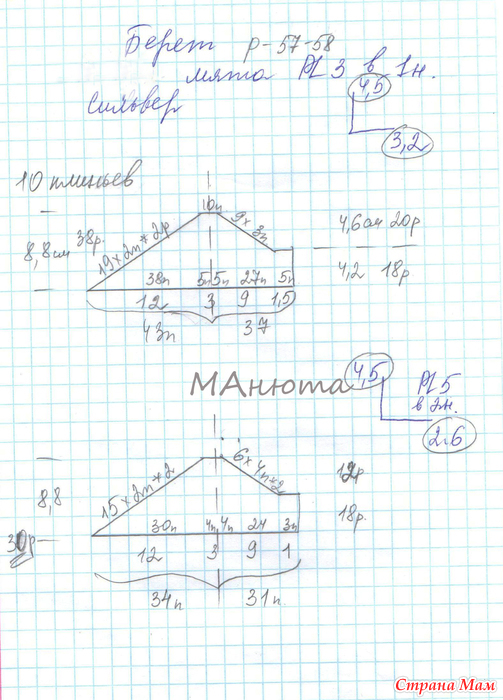 Берет р-57-58
мята PL 3 в 1н.
сильвер
4,5
3,2
10 клиньев
10п
19х2п*2р
9х3п
8,8см 38р.
4,6см 20р
4,2 18р
38п 5п 5п 27п 5п
12 3 9 1,5
43п 37
МАнюта
4,5
PL 5
в 2н.
2.6
15х2п*2
6х4п*2
12р
8,8
18р.
30р
30п 4п 4п 24 3п
12 3 9 1
34п 31п
Страна Мам